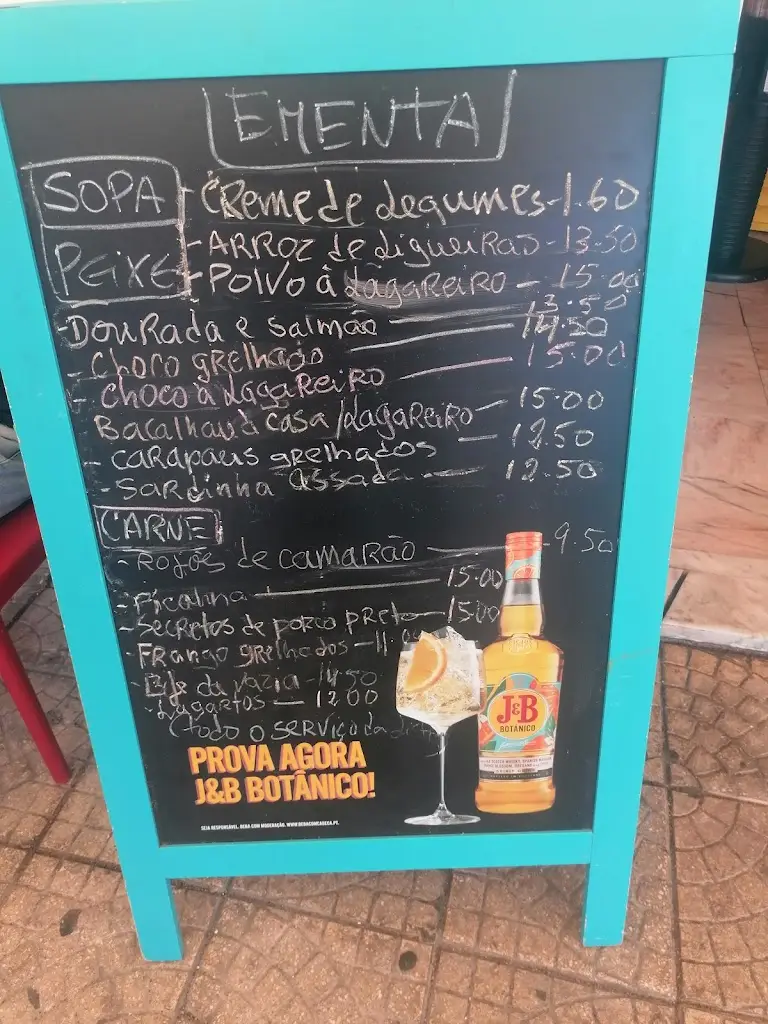 EMENTA
SOPA - Creme de Legumes - 1.60
PEIXE - ARROZ de Ligueiras - 13.50
- POLVO à Lagareiro - 15.00
- Dourada e Salmão 13.50
- Choco grelhado 14.50
- choco à Lagareiro 15.00
Bacalhau à casa/Lagareiro 15.00
- carapaus grelhados - 12.50
- Sardinha Assada - 12.50
CARNE
- Rojões de camarão - 9.50
- Picalina 15.00
- Secretos de porco preto 15.00
- Frango grelhados - 11.00
- da vazia - 14.50
- Lagartos - 12.00
(todo o serviço da
PROVA AGORA
J&B BOTÂNICO!
SEJA RESPONSÁVEL. BEBA COM MODERAÇÃO. WWW.BEBACOMCABECA.PT.
J&B
BOTÁNICO